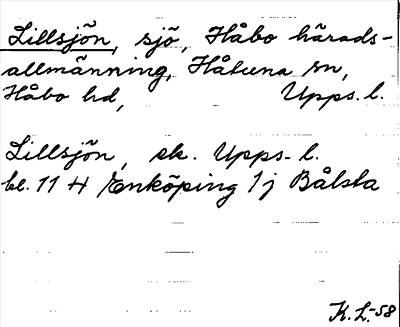 Lillsjön, sjö, Håbo härads-
allmänning, Håtuna sn,
Håbo hd, Upps. l.
Lillsjön, ek. Upps. l.
bl. 11 H Enköping 1j Bålsta
K. L. -58